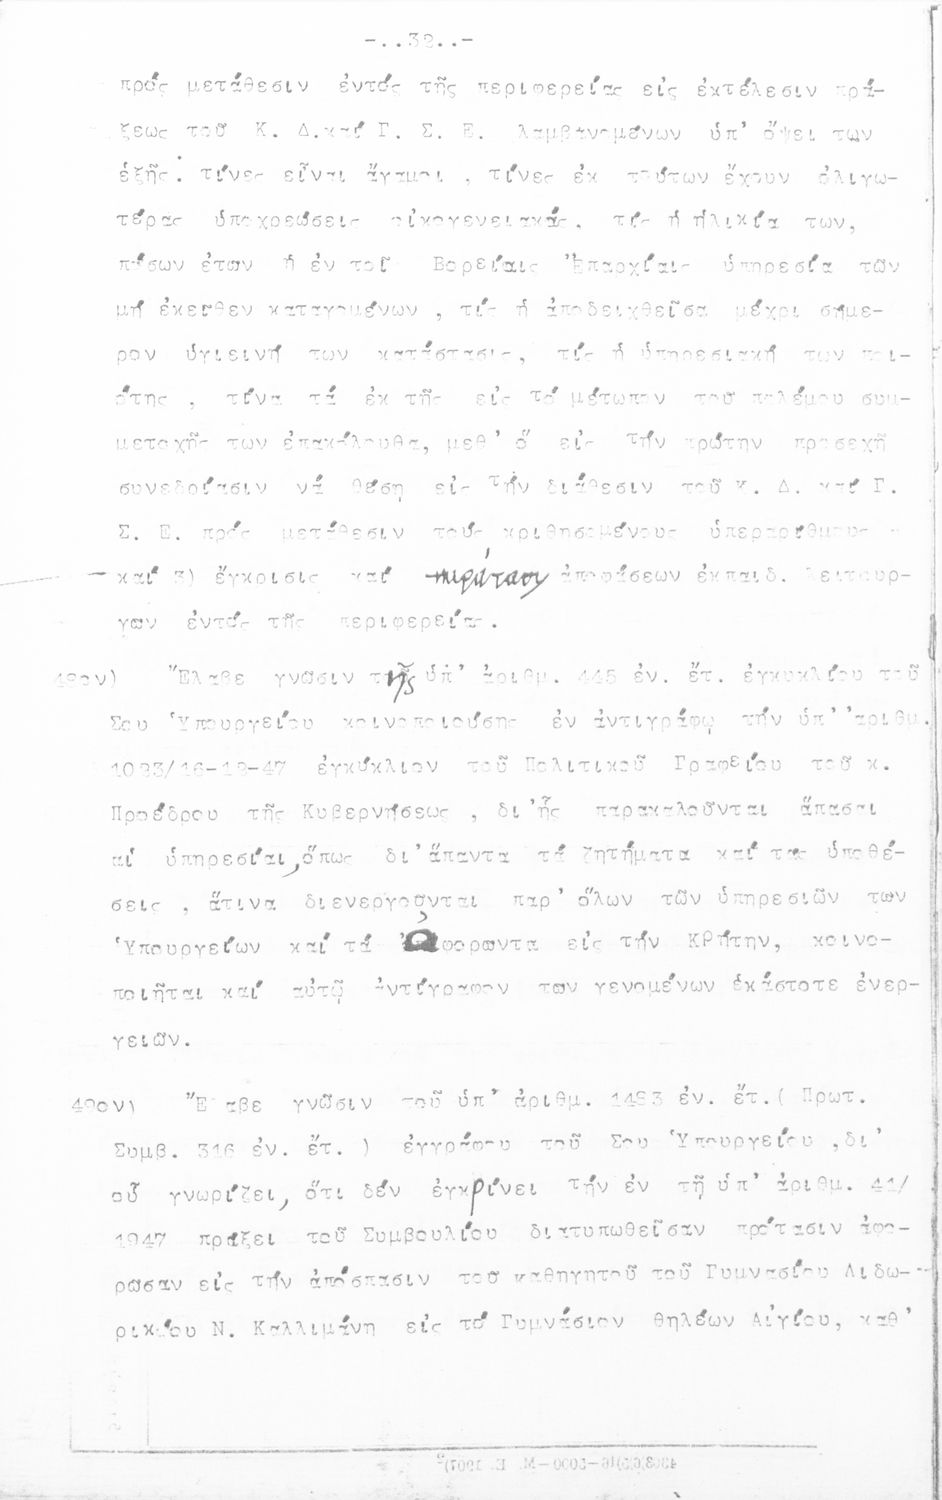 -..32..-
πρός μετάθεσιν ἐντός τῆς περιφερείας εἰς ἐκτέλεσιν πρά-
ξεως τοῦ Κ. Δ.καί Γ. Σ. Ε. λαμβανομένων ὑπ' ὄψει των
ἑξῆς: τίνες εἶναι ἄγαμοι , τίνες ἐκ τούτων ἔχουν ὀλιγω-
τέρας ὑποχρεώσεις οἰκογενειακάς, τίς ἡ ἡλικία των,
πόσων ἐτων ἡ ἐν ταῖς Βορείαις Ἐπαρχίαις ὑπηρεσία τῶν
μή ἐκεῖθεν καταγομένων , τίς ἡ ἀποδειχθεῖσα μέχρι σήμε-
ρον ὑγιεινή των κατάστασις, τίς ἡ ὑπηρεσιακή των ποι-
ότης , τίνα τά ἐκ τῆς εἰς τό μέτωπον τοῦ πολέμου συμ-
μετοχῆς των ἐπακόλουθα, μεθ' ὅ εἰς τήν πρώτην προσεχῆ
συνεδρίασιν νά θέση εἰς τήν διάθεσιν τοῦ Κ. Δ. καί Γ.
Σ. Ε. πρός μετάθεσιν τούς κριθησομένους ὑπεραρίθμους
καί 3) ἔγκρισις καί ἀποφάσεων ἐκπαιδ. λειτουρ-
γων ἐντός τῆς περιφερείας.
48ον) Ἔλαβε γνῶσιν τῆς ὑπ' ἀριθμ. 445 ἐν. ἔτ. ἐγκυκλίου τοῦ
Σου Ὑπουργείου κοινοποιούσης ἐν ἀντιγράφῳ τήν ὑπ' ἀριθμ.
1093/16-12-47 ἐγκύκλιον τοῦ Πολιτικοῦ Γραφείου τοῦ κ.
Προέδρου τῆς Κυβερνήσεως , δι'ἧς παρακαλοῦνται ἅπασαι
αἱ ὑπηρεσίαι,ὅπως δι'ἅπαντα τά ζητήματα καί τας ὑποθέ-
σεις , ἅτινα διενεργοῦνται παρ' ὅλων τῶν ὑπηρεσιῶν των
Ὑπουργείων καί τά ἀφορωντα εἰς τήν Κρήτην, κοινο-
ποιῆται καί αὐτῷ ἀντίγραφον των γενομένων ἑκάστοτε ἐνερ-
γειῶν.
49ον) Ἔλαβε γνῶσιν τοῦ ὑπ' ἀριθμ. 1493 ἐν. ἔτ.( Πρωτ.
Συμβ. 316 ἐν. ἔτ. ) ἐγγράφου τοῦ Σου Ὑπουργείου ,δι'
οὗ γνωρίζει, ὅτι δέν ἐγκρίνει τήν ἐν τῇ ὑπ' ἀριθμ. 41/
1947 πράξει τοῦ Συμβουλίου διατυπωθεῖσαν πρότασιν ἀφο-
ρῶσαν εἰς τήν ἀπόσπασιν τοῦ καθηγητοῦ τοῦ Γυμνασίου Λιδω-
ρικίου Ν. Καλλιμάνη εἰς τό Γυμνάσιον θηλέων Αἰγίου, καθ'